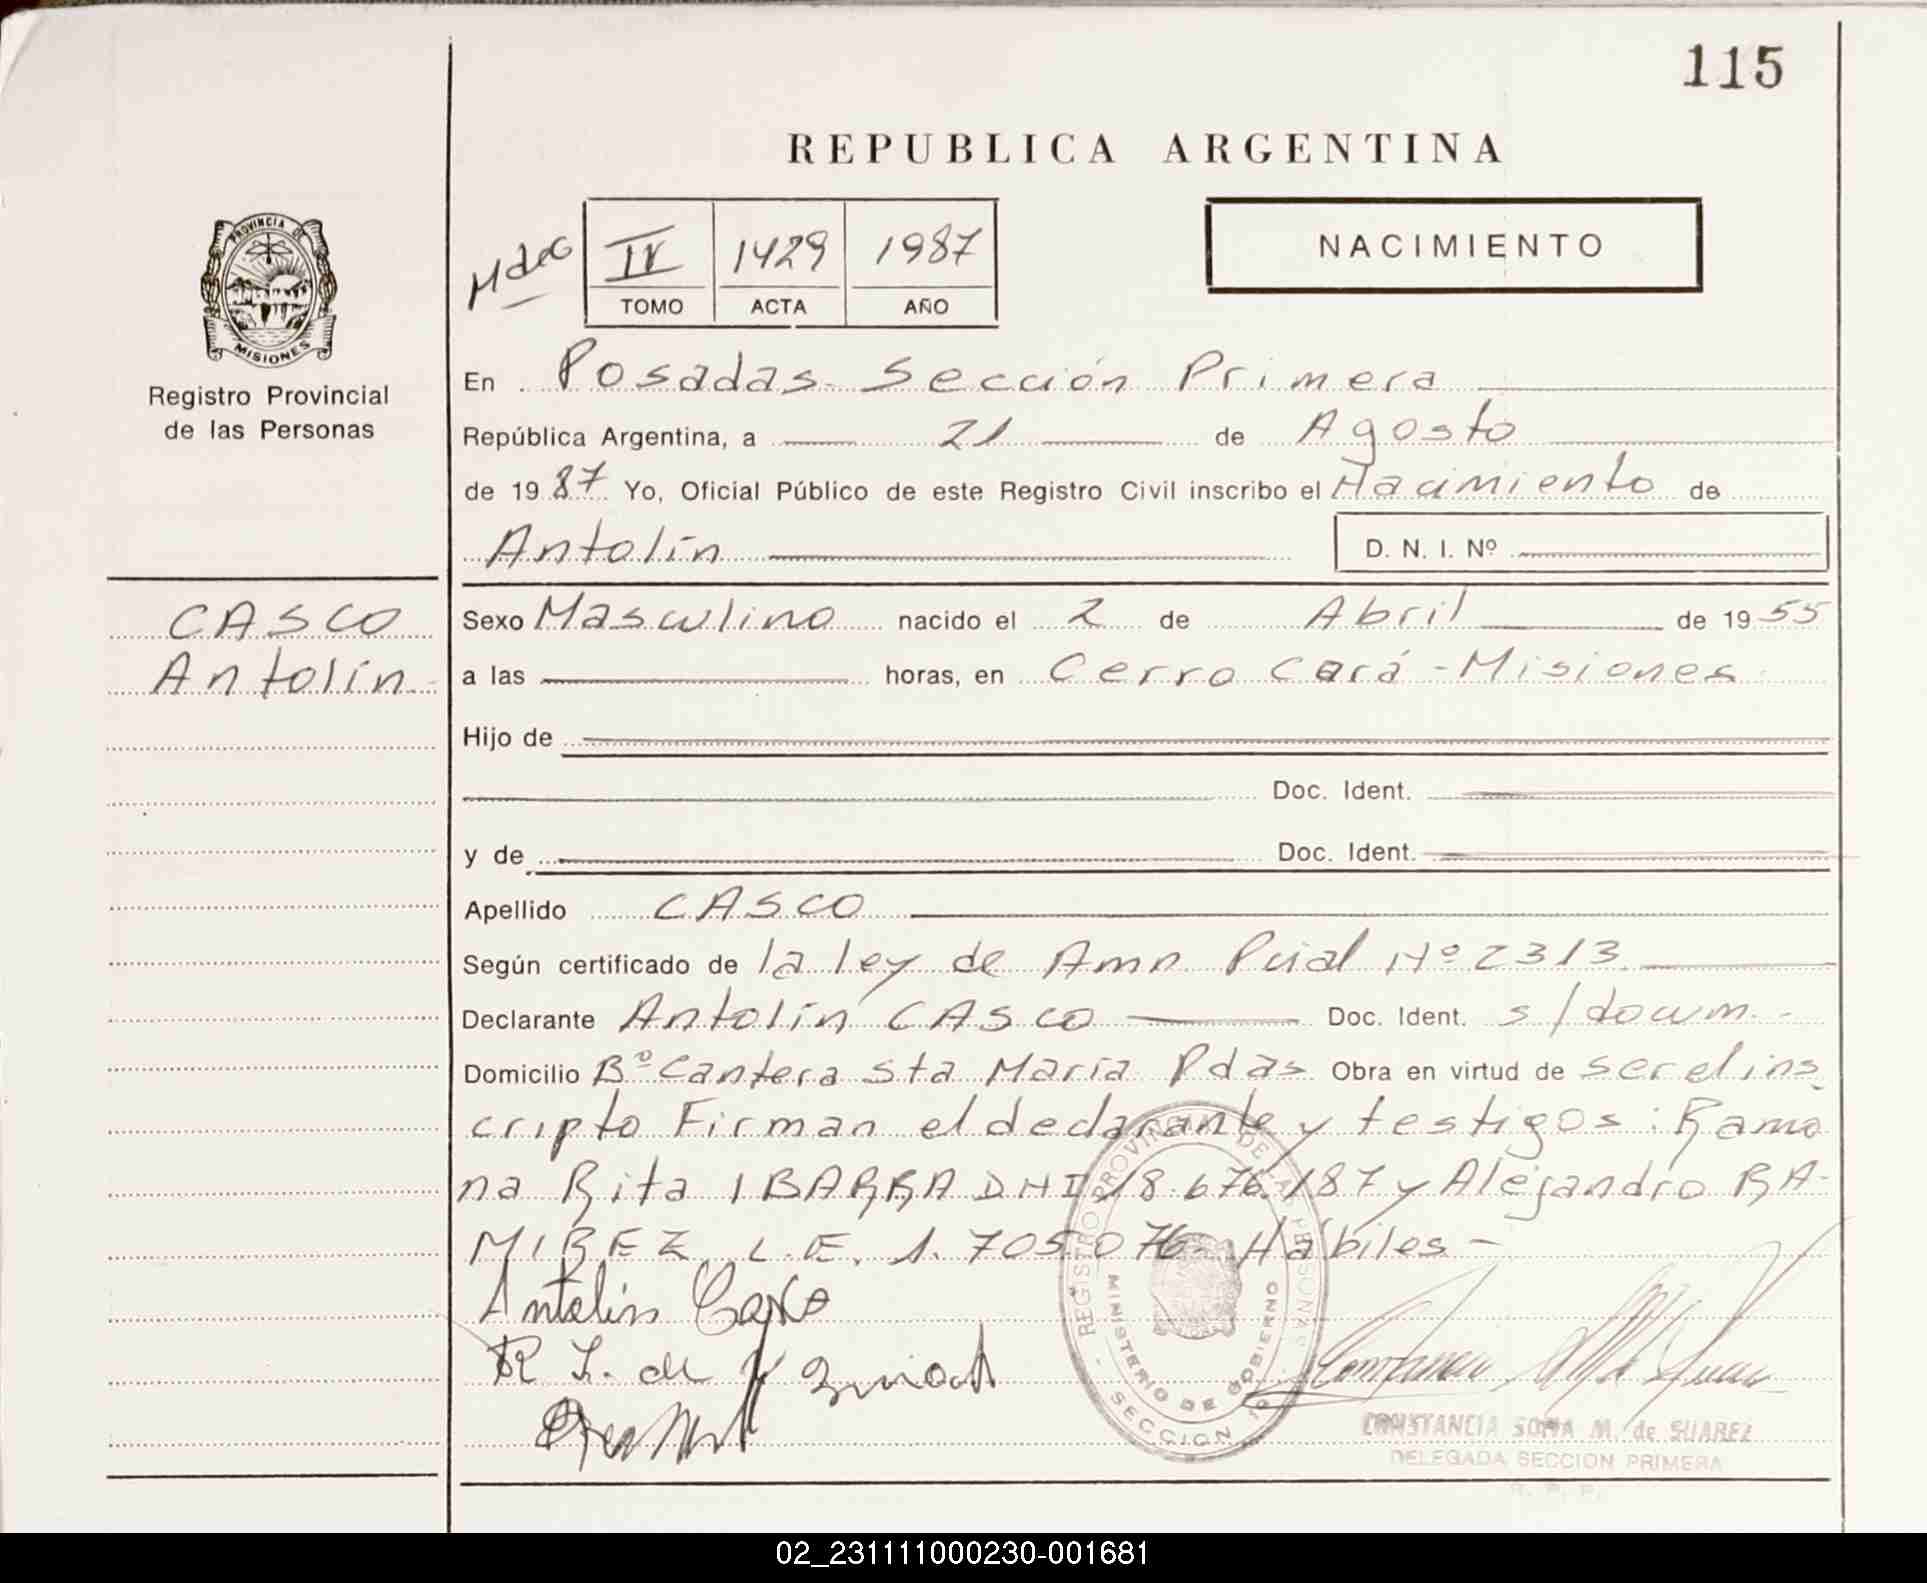 115
REPUBLICA ARGENTINA
PROVINCIA DE
MISIONES
Registro Provincial
de las Personas
IV 1429 1987
TOMO ACTA AÑO
NACIMIENTO
En Posadas Sección Primera
República Argentina, a 21 de Agosto
de 19 87 Yo, Oficial Público de este Registro Civil inscribo el Nacimiento de
Antolín D. N. I. Nº
CASCO
Antolín
Sexo Masculino nacido el 2 de Abril de 19 55
a las horas, en Cerro Corá - Misiones
Hijo de
Doc. Ident.
y de Doc. Ident.
Apellido CASCO
Según certificado de la ley de Amn Pcial Nº 2313
Declarante Antolín CASCO Doc. Ident. s/docum.-
Domicilio Bº Cantera Sta María Pdas Obra en virtud de ser el ins
cripto Firman el declarante y testigos: Ramo
na Rita IBARRA DNI 18.676.187 y Alejandro RA-
MIREZ L.E. 1.705.076. Hábiles -
Antolin Casco
REGISTRO PROVINCIAL DE LAS PERSONAS
MINISTERIO DE GOBIERNO
SECCION 1º
CONSTANCIA SOFIA M. de SUAREZ
DELEGADA SECCION PRIMERA
R. P. P.
02_231111000230-001681